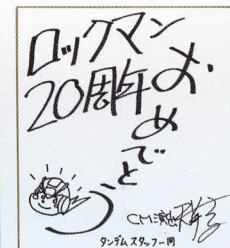 ロックマン
20周年
おめでとう
CM演出
タンデムスタッフ一同